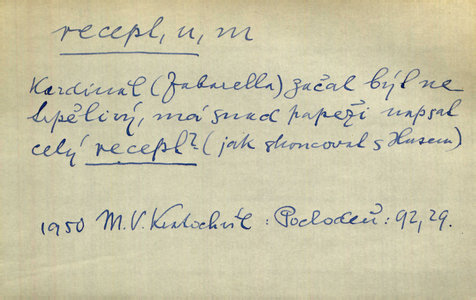 recept, u, m
Kardinál (Zabarella) začal být ne
trpělivý, má snad papeži napsat
celý recept? (jak skoncovat s Husem)
1950 M.V. Kratochvíl: Pochodeň: 92, 29.